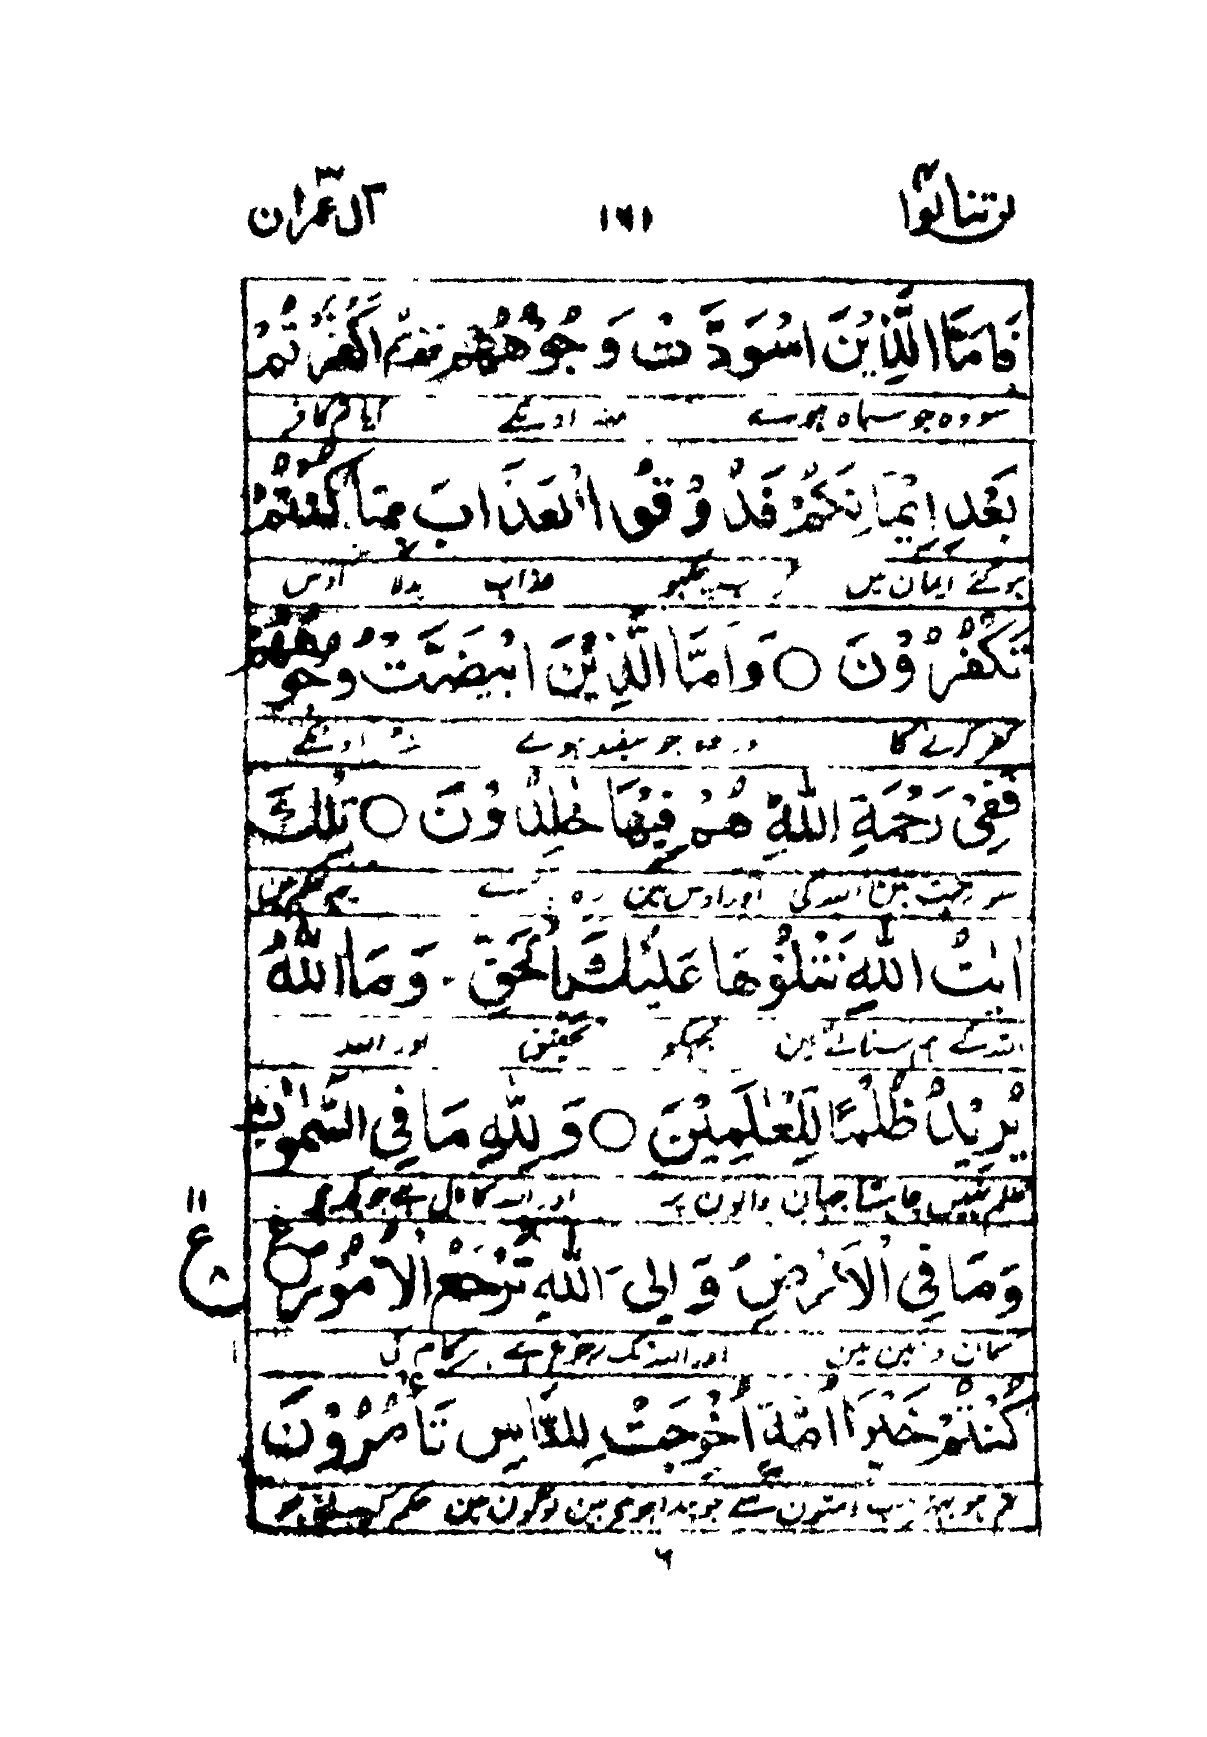 لن تنالوا ٤ ١٦١ آل عمران ٣
فَاَمَّا الَّذِيْنَ اسْوَدَّتْ وُجُوْهُهُمْ اَكَفَرْتُمْ
سو وه جو سیاه ہوے منہ اونکے کیا تم کافر
بَعْدَ اِيْمَانِكُمْ فَذُوْقُوا الْعَذَابَ بِمَا كُنْتُمْ
ہوگئے ایمان میں عذاب بدلا اوس
تَكْفُرُوْنَ ○ وَاَمَّا الَّذِيْنَ ابْيَضَّتْ وُجُوْهُهُمْ
کفر کرنے کا اور وہ جو سفید ہوے منہ اونکے
فَفِيْ رَحْمَةِ اللّٰهِ هُمْ فِيْهَا خٰلِدُوْنَ ○ تِلْكَ
سو رحمت میں اللہ کی اور اوس میں یہ حکم ہیں
اٰيٰتُ اللّٰهِ نَتْلُوْهَا عَلَيْكَ بِالْحَقِّ وَمَا اللّٰهُ
اللہ کے ہم سناتے ہین تجھکو تحقیق اور اللہ
يُرِيْدُ ظُلْمًا لِلْعٰلَمِيْنَ ○ وَلِلّٰهِ مَا فِي السَّمٰوٰتِ
ظلم نہیں چاہتا جہان والون پر اور اللہ کا مال ہے جو کچھ
وَمَا فِي الْاَرْضِ وَاِلَى اللّٰهِ تُرْجَعُ الْاُمُوْرُ
١١
ع
٨
آسمان و زمین مین اور اللہ تک رجوع ہے ہر کام کی
كُنْتُمْ خَيْرَ اُمَّةٍ اُخْرِجَتْ لِلنَّاسِ تَاْمُرُوْنَ
تم ہو بہتر سب امتون سے جو پیدا ہوی ہین لوگون مین حکم کرتے ہو
٦